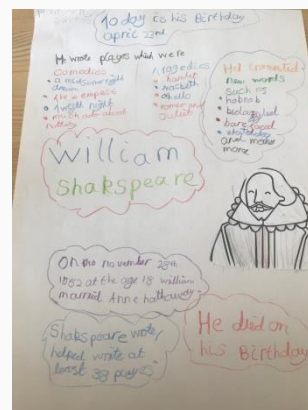 10 day to his Birthday
april 22nd
He wrote playes which were
Comedies
a
night
dream
the tempest
night
much
Tragedies
hamlet
macbeth
othello
romeo and
Juliet
He invented
new words
such as
hobnob
bare faced
and many
more
William
Shakspeare
On the november 28th
1582 at the age 18 william
married Anne hathaway
Shakspeare wrote/
helped wrote at
least 38 playes
He died on
his Birthday